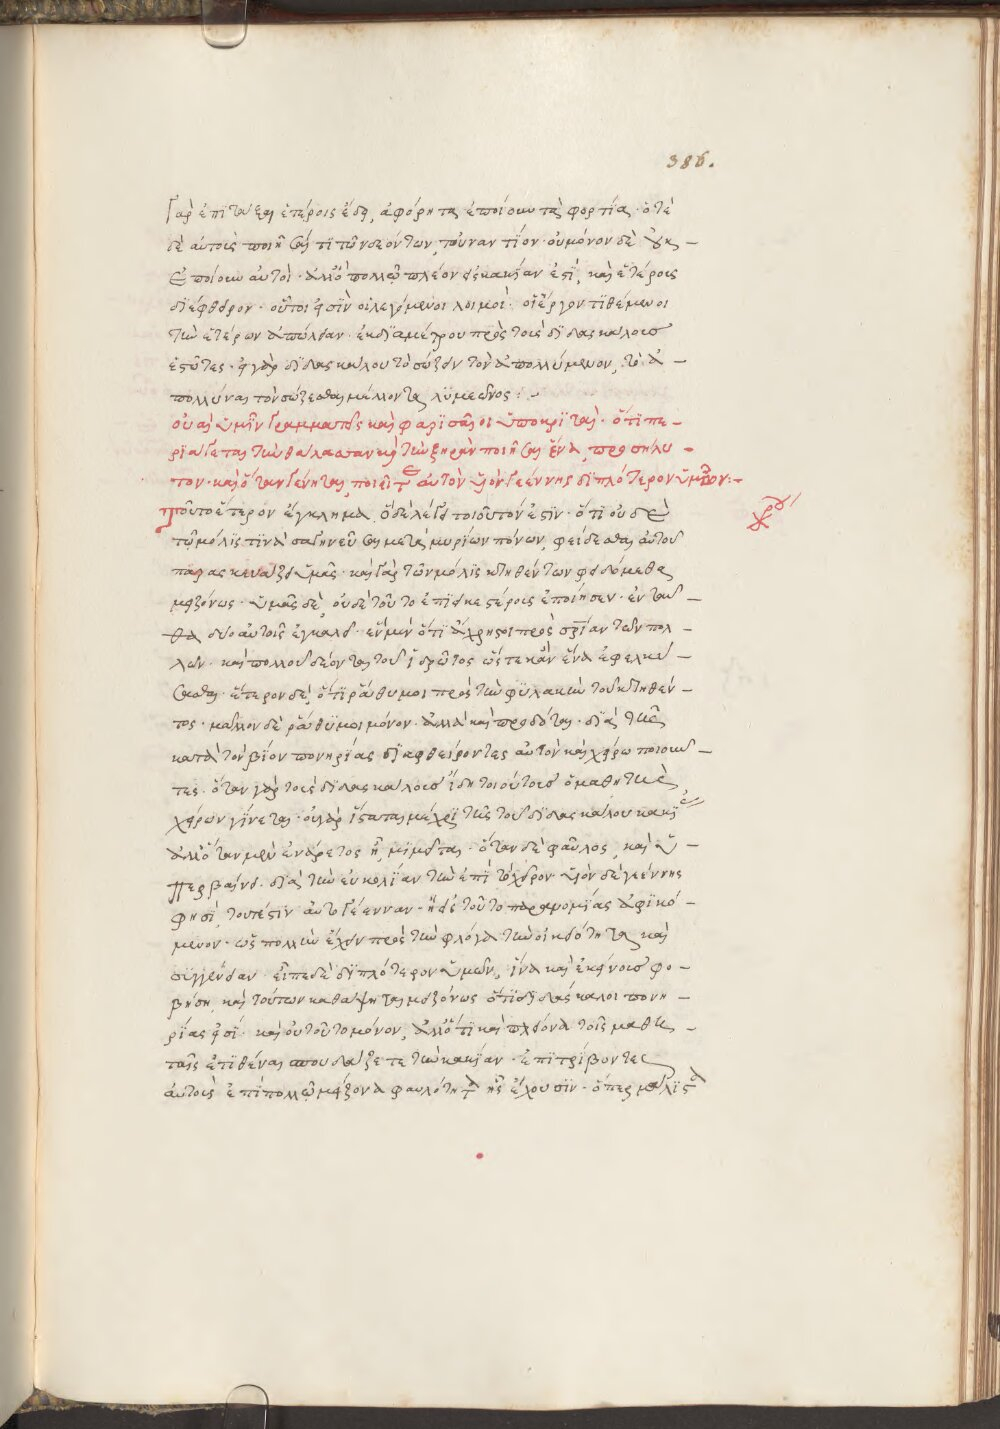 386.
γὰρ ἐπιτάξαι ἑτέροις ἔδει, ἀφόρητα ἐποίουν τὰ φορτία· ὅτε
δὲ αὐτοὺς ποιῆσαί τι τῶν δεόντων, τοὐναντίον· οὐ μόνον δὲ οὐκ
ἐποίουν αὐτοὶ· ἀλλ' ὃ πολλῷ πλέον εἰς κακίαν ἐστί, καὶ ἑτέρους
διέφθειρον· οὗτοί εἰσιν οἱ λεγόμενοι λοιμοί· οἱ ἔργον τιθέμενοι
τὴν ἑτέρων ἀπώλειαν· ἐκ διαμέτρου πρὸς τοὺς διδασκάλους
ἑστῶτες· εἰ γὰρ διδασκάλου τὸ σώζειν τὸν ἀπολλύμενον, τὸ ἀ-
πολλύναι τὸν σώζεσθαι μέλλοντα λυμεῶνος:-
οὐαὶ ὑμῖν γραμματεῖς καὶ φαρισαῖοι ὑποκριταί· ὅτι πε-
ριάγετε τὴν θάλασσαν καὶ τὴν ξηρὰν ποιῆσαι ἕνα προσήλυ-
τον· καὶ ὅταν γένηται, ποιεῖτε αὐτὸν υἱὸν γεέννης διπλότερον ὑμῶν:-
χρυ
Τοῦτο ἕτερον ἔγκλημα. ὃ δὲ λέγει τοιοῦτόν ἐστιν· ὅτι οὐδὲ
τῷ μόλις τινὰ σαγηνεῦσαι μετὰ μυρίων πόνων, φείδεσθαι αὐτοῦ
παρασκευάζει ὑμᾶς· καὶ γὰρ τῶν μόλις κτηθέντων φειδόμεθα
μειζόνως· ὑμᾶς δὲ, οὐδὲ τοῦτο ἐπιεικεστέρους ἐποίησεν· ἐνταῦ-
θα δύο αὐτοῖς ἐγκαλεῖ· ἓν μὲν ὅτι ἄχρηστοι πρὸς σωτηρίαν τῶν πολ-
λῶν· καὶ πολλοῦ δέονται τοῦ ἱδρῶτος ὥστε κἂν ἕνα ἐφελκύ-
σασθαι· ἕτερον δὲ, ὅτι ῥάθυμοι πρὸς τὴν φυλακὴν τοῦ κτηθέν-
τος· μᾶλλον δὲ ῥάθυμοι μόνον· ἀλλὰ καὶ προδόται· διὰ τῆς
κατὰ τὸν βίον πονηρίας διαφθείροντες αὐτὸν καὶ χείρω ποιοῦν-
τες· ὅταν γὰρ τοὺς διδασκάλους ἴδῃ τοιούτους ὁ μαθητὴς
χείρων γίνεται· οὐ γὰρ ἵσταται μέχρι τῆς τοῦ διδασκάλου κακί
ἀλλ' ὅταν μὲν ἐνάρετος ᾖ, μιμεῖται· ὅταν δὲ φαῦλος, καὶ ὑ-
περβαίνει· διὰ τὴν εὐκολίαν τὴν ἐπὶ τὸ χεῖρον· υἱὸν δὲ γεέννης
φησί, τουτέστιν αὐτογέενναν· ἢ εἰς τοῦτο παρανομίας ἀφικό-
μενον· ὡς πολλὴν ἔχειν πρὸς τὴν φλόγα τὴν οἰκειότητα καὶ
συγγένειαν. εἶπε δὲ διπλότερον ὑμῶν, ἵνα καὶ ἐκείνους φο-
βήσῃ, καὶ τούτων καθάψηται μειζόνως ὅτι διδάσκαλοι πονη-
ρίας εἰσί· καὶ οὐ τοῦτο μόνον, ἀλλ' ὅτι καὶ πλείονα τοῖς μαθη-
ταῖς ἐπιθεῖναι σπουδάζετε τὴν κακίαν· ἐπιτρίβοντες
αὐτοὺς ἐπὶ πολλῷ μείζονα φαυλότητα ἧς ἔχουσιν· ὅπερ μάλιστα